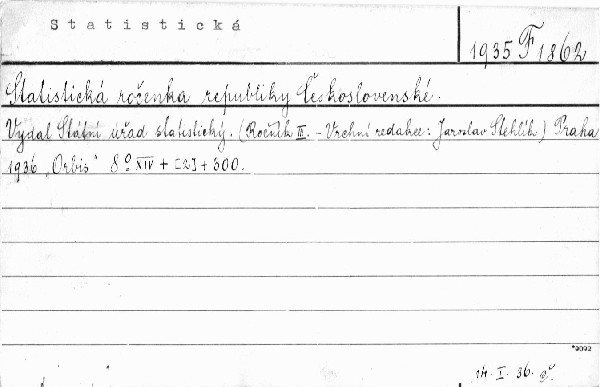 Statistická
1935 F 1862
Statistická ročenka republiky Československé.
Vydal Státní úřad statistický. (Ročník III. - Vrchní redakce: Jaroslav Stehlík) Praha
1936 „Orbis" 8° XIV + [2] + 300.
*9092
14. I. 36.